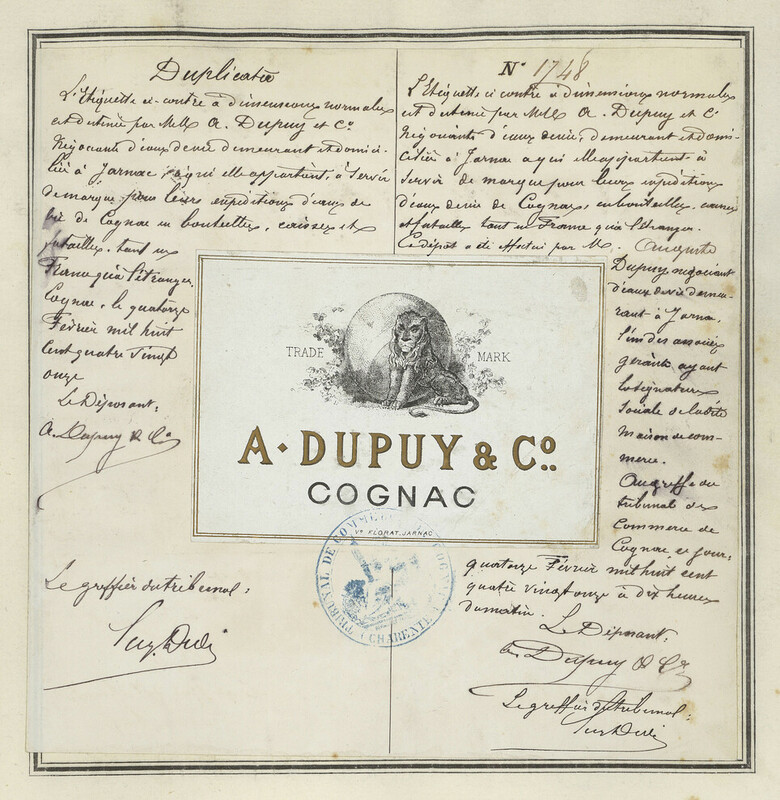 Duplicata
L'Etiquette ci-contre à dimensions normales
est destinée par MM. A. Dupuy et Co
Négociants d'eaux de vie demeurant et domici-
liés à Jarnac, à qui elle appartient, à servir
de marque pour leurs expéditions d'eaux de
vie de Cognac en bouteilles, caisses et
futailles, tant en
France qu'à l'étranger.
Cognac, le quatorze
Février mil huit
cent quatre vingt
onze
Le Déposant:
A. Dupuy & Co
Le greffier du tribunal:
No 1748
L'Etiquette ci contre à dimensions normales
est destinée par MM. A. Dupuy et Co
Négociants d'eaux de vie, demeurant et domi-
ciliés à Jarnac à qui elle appartient, à
servir de marque pour leurs expéditions
d'eaux de vie de Cognac, en bouteilles, caisses
et futailles tant en France qu'à l'étranger.
Ce dépôt a été effectué par M. Auguste
Dupuy négociant
d'eaux de vie demeu-
rant à Jarnac,
l'un des associés
gérants ayant
la signature
sociale de la dite
maison de com-
merce.
Au greffe du
tribunal de
Commerce de
Cognac ce jour:
quatorze Février mil huit cent
quatre vingt onze à dix heures
du matin.
Le Déposant:
A. Dupuy & Co
Le greffier du tribunal:
TRADE MARK
A. DUPUY & Co.
COGNAC
Ve FLORAT. JARNAC
TRIBUNAL DE COMMERCE COGNAC
(CHARENTE)